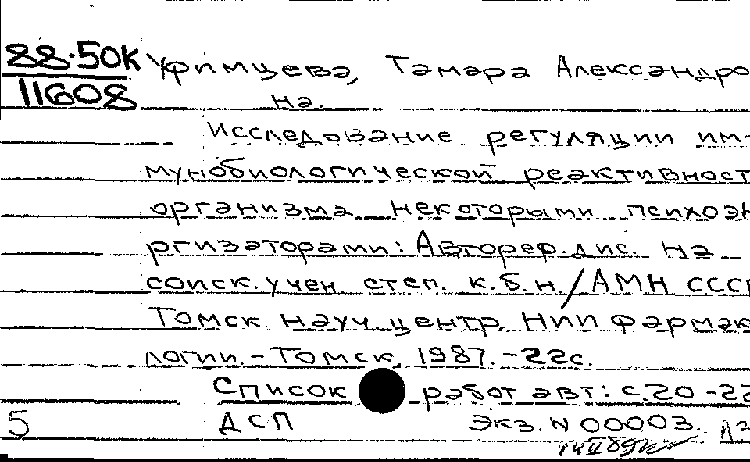 88·50К
11608
Уфимцева, Тамара Александро
на.
Исследование регуляции им-
мунобиологической реактивност
организма некоторыми психоэн
ргизаторами: Автореф. дис. на
соиск. учен. степ. к.б.н./АМН ССС
Томск. науч. центр, НИИ фармак
логии. - Томск, 1987. - 22с.
Список работ авт: с.20-22
ДСП Экз. N 00003.
5